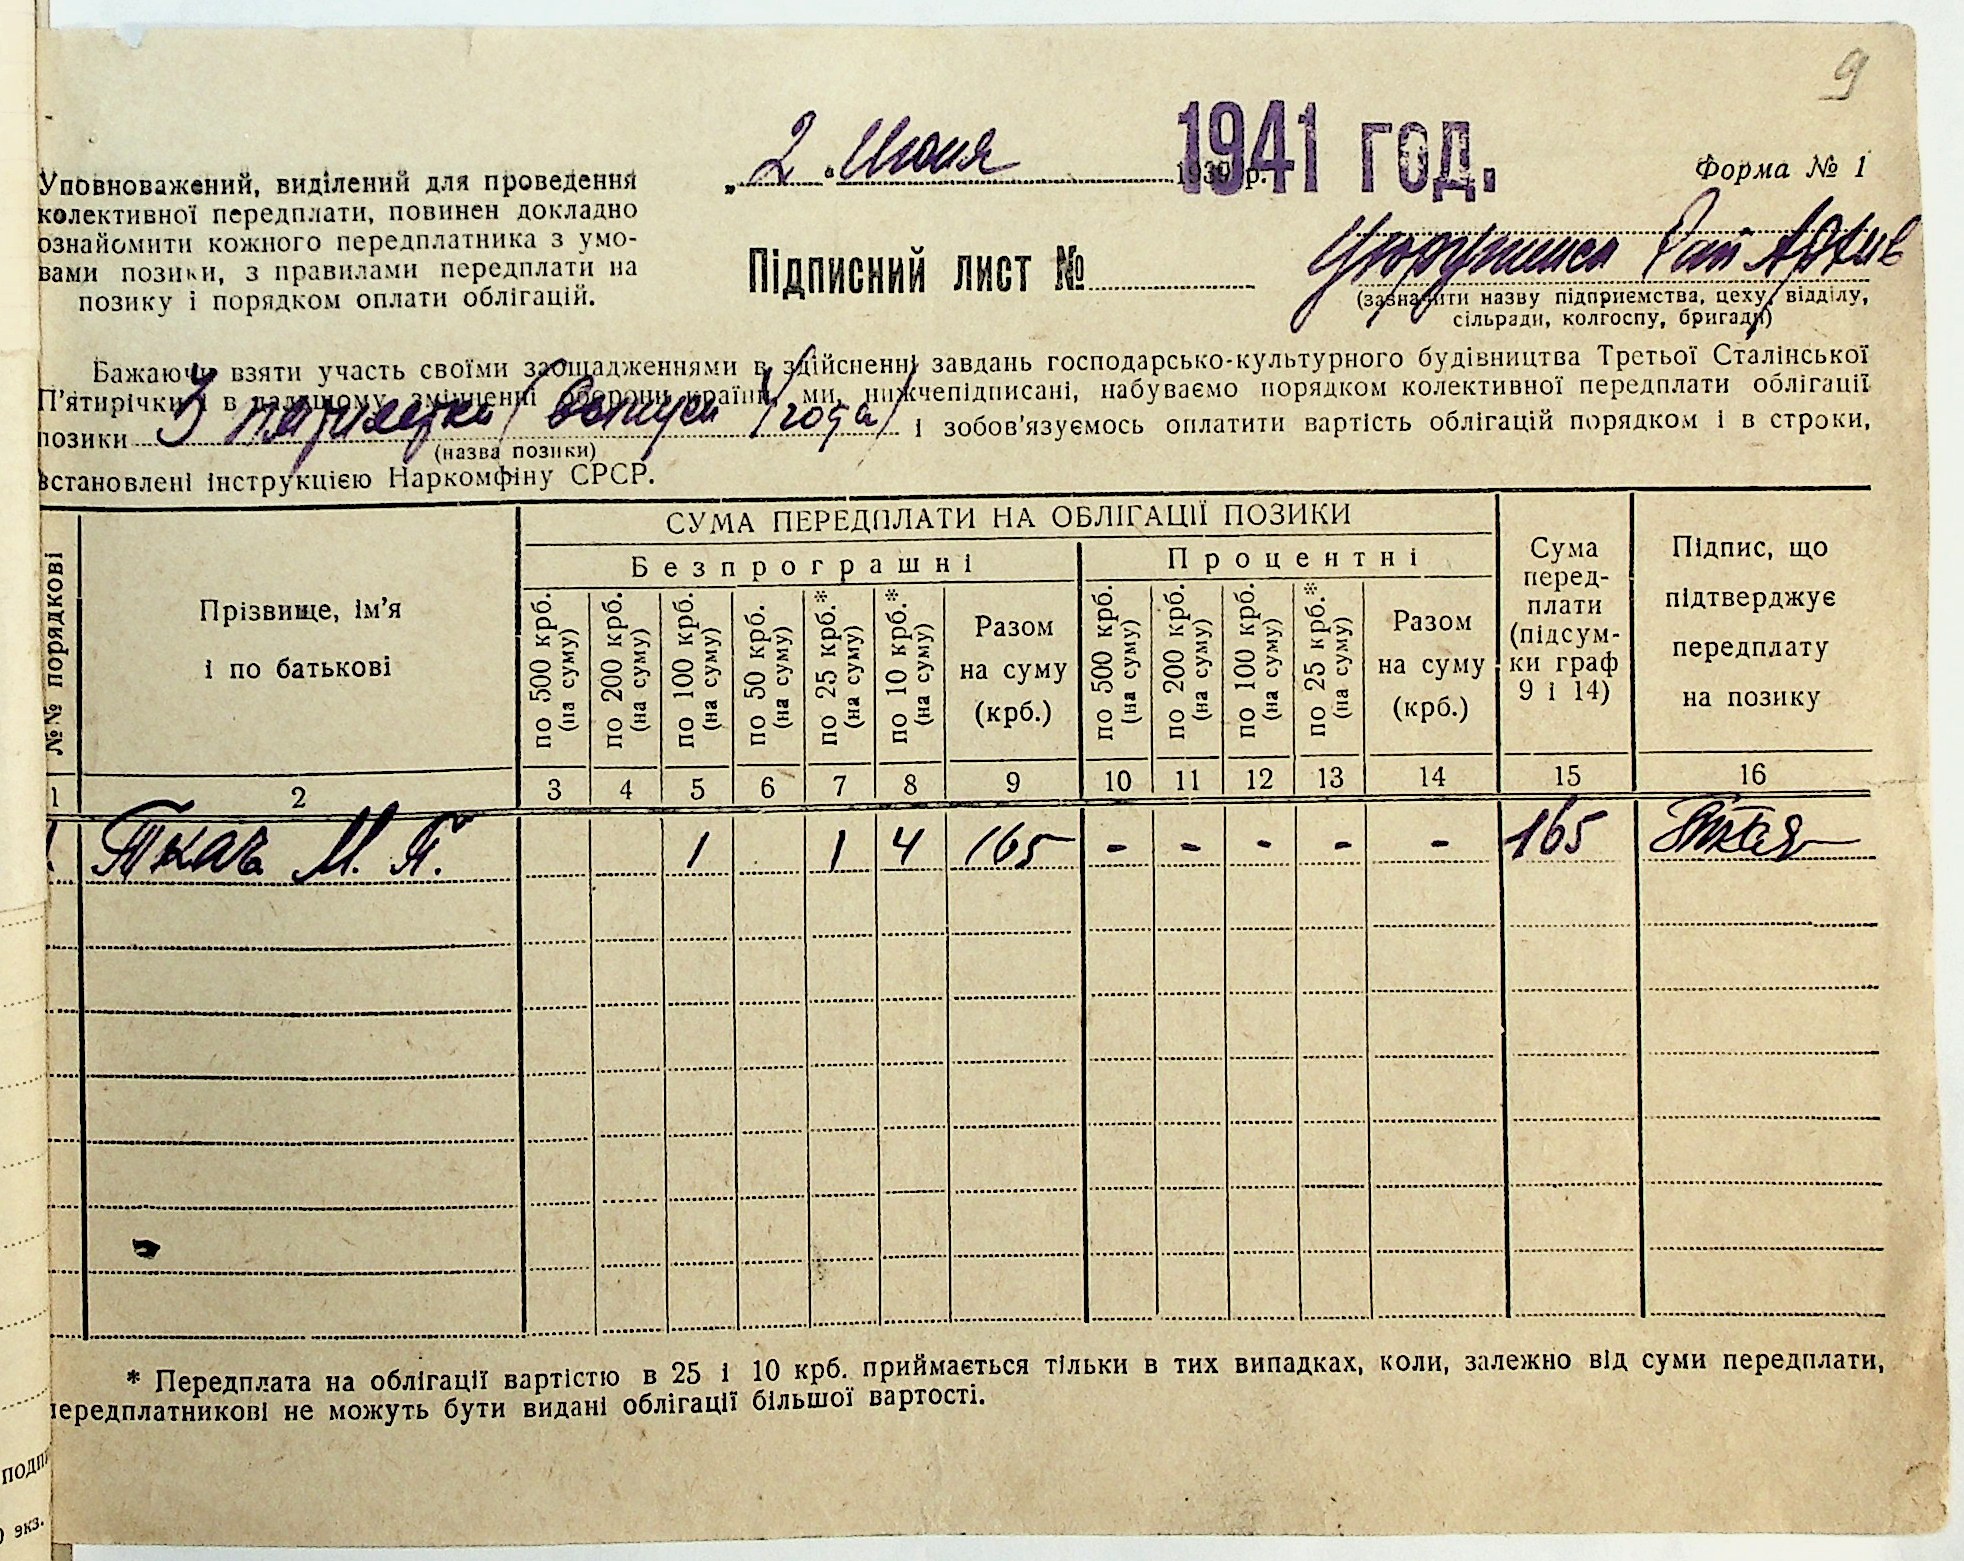 9
„ 2 “ Июня 1939 р. 1941 ГОД.
Форма № 1
Уповноважений, виділений для проведення
колективної передплати, повинен докладно
ознайомити кожного передплатника з умо-
вами позики, з правилами передплати на
позику і порядком оплати облігацій.
Підписний лист №
Рай Архив
(зазначити назву підприємства, цеху, відділу,
сільради, колгоспу, бригади)
Бажаючи взяти участь своїми заощадженнями в здійсненні завдань господарсько-культурного будівництва Третьої Сталінської
П'ятирічки і в дальшому зміцненні оборони країни, ми, нижчепідписані, набуваємо порядком колективної передплати облігації
позики 3 пятилетки (выпуск 4 года) і зобов'язуємось оплатити вартість облігацій порядком і в строки,
(назва позики)
встановлені інструкцією Наркомфіну СРСР.
№№ порядкові
Прізвище, ім'я
і по батькові
СУМА ПЕРЕДПЛАТИ НА ОБЛІГАЦІЇ ПОЗИКИ
Безпрограшні
Процентні
по 500 крб.
(на суму)
по 200 крб.
(на суму)
по 100 крб.
(на суму)
по 50 крб.
(на суму)
по 25 крб.*
(на суму)
по 10 крб.*
(на суму)
Разом
на суму
(крб.)
по 500 крб.
(на суму)
по 200 крб.
(на суму)
по 100 крб.
(на суму)
по 25 крб.*
(на суму)
Разом
на суму
(крб.)
Сума
перед-
плати
(підсум-
ки граф
9 і 14)
Підпис, що
підтверджує
передплату
на позику
1 2 3 4 5 6 7 8 9 10 11 12 13 14 15 16
1 Ткач М. Я. 1 1 4 165 - - - - - 165
* Передплата на облігації вартістю в 25 і 10 крб. приймається тільки в тих випадках, коли, залежно від суми передплати,
передплатникові не можуть бути видані облігації більшої вартості.
экз.